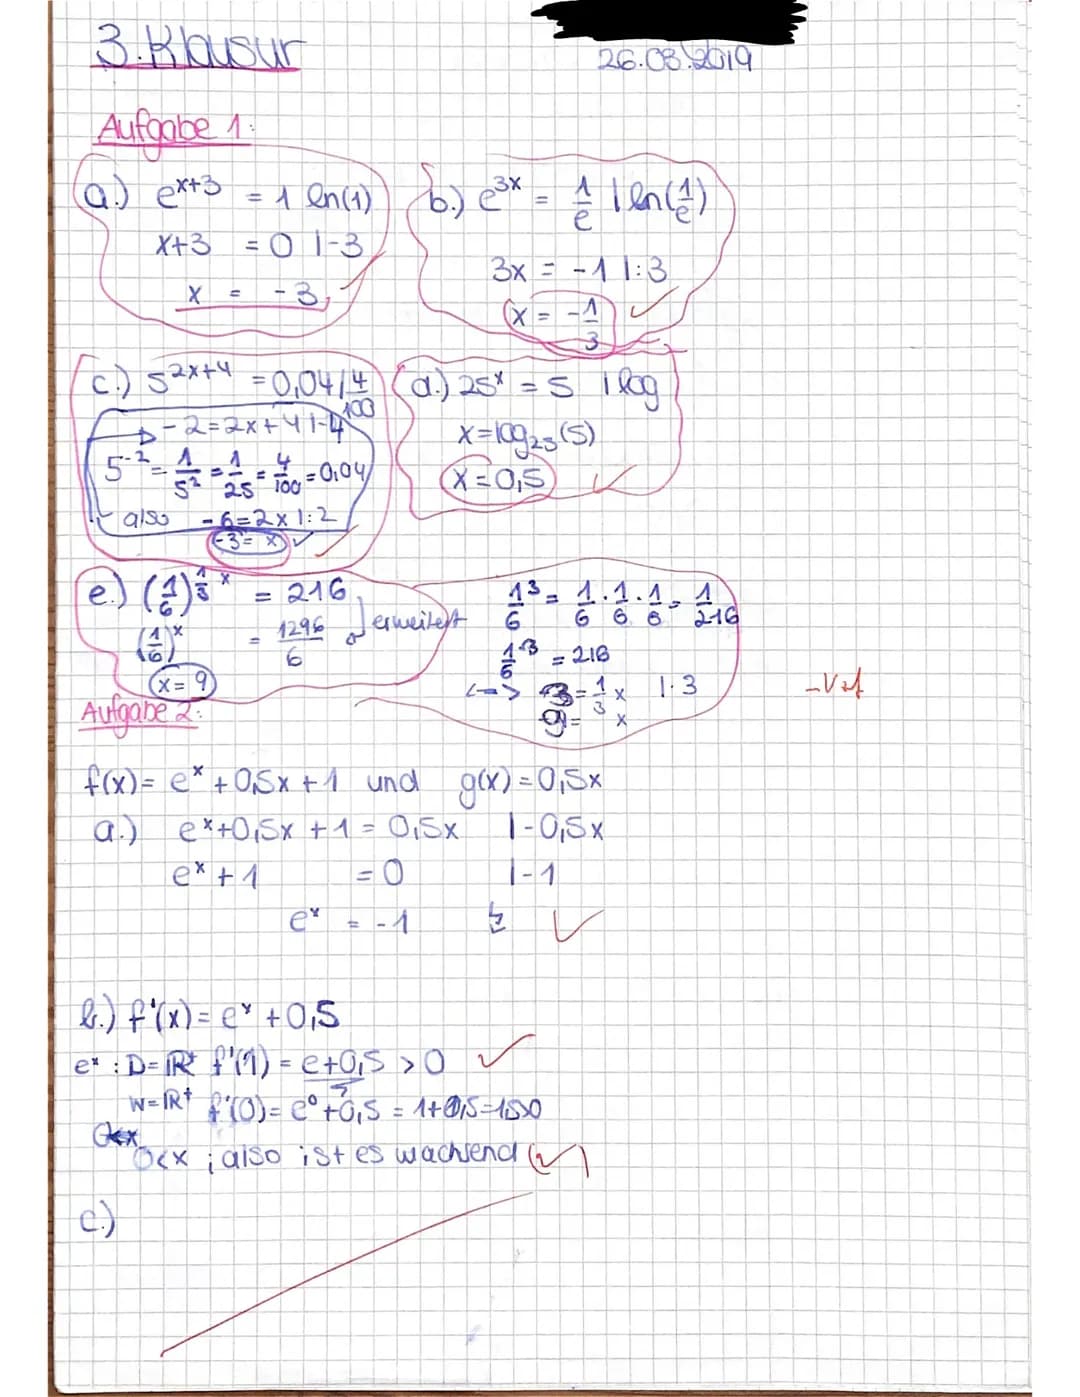 3. Klausur
26.03.2019
Aufgabe 1:
a.) e^{x+3} = 1 ln(1)
x+3 = 0 |-3
x = -3
b.) e^{3x} = 1/e | ln(1/e)
3x = -1 |:3
x = -1/3
c.) 5^{2x+4} = 0,04 | 4/100
-2=2x+4 |-4
5^{-2} = 1/5² = 1/25 = 4/100 = 0,04
also -6=2x |:2
-3 = x
d.) 25^x = 5 | log
x=log_{25}(5)
x=0,5
e.) (1/6)^{1/3 x} = 216
(1/6)^x = 1296/6 erweitert
x=9
1/6^3 = 1/6 · 1/6 · 1/6 = 1/216
1/6^{-3} = 216
<-> -3 = 1/3 x |·3
9 = x
Aufgabe 2:
f(x)= e^x + 0,5x + 1 und g(x)=0,5x
a.) e^x+0,5x + 1 = 0,5x |-0,5x
e^x + 1 = 0 |-1
e^x = -1 ↯
b.) f'(x)= e^x + 0,5
e^x : D=ℝ^+ f'(1) = e+0,5 > 0
W=ℝ^+ f'(0)= e^0+0,5 = 1+0,5=1,5>0
0<x ; also ist es wachsend
c.)